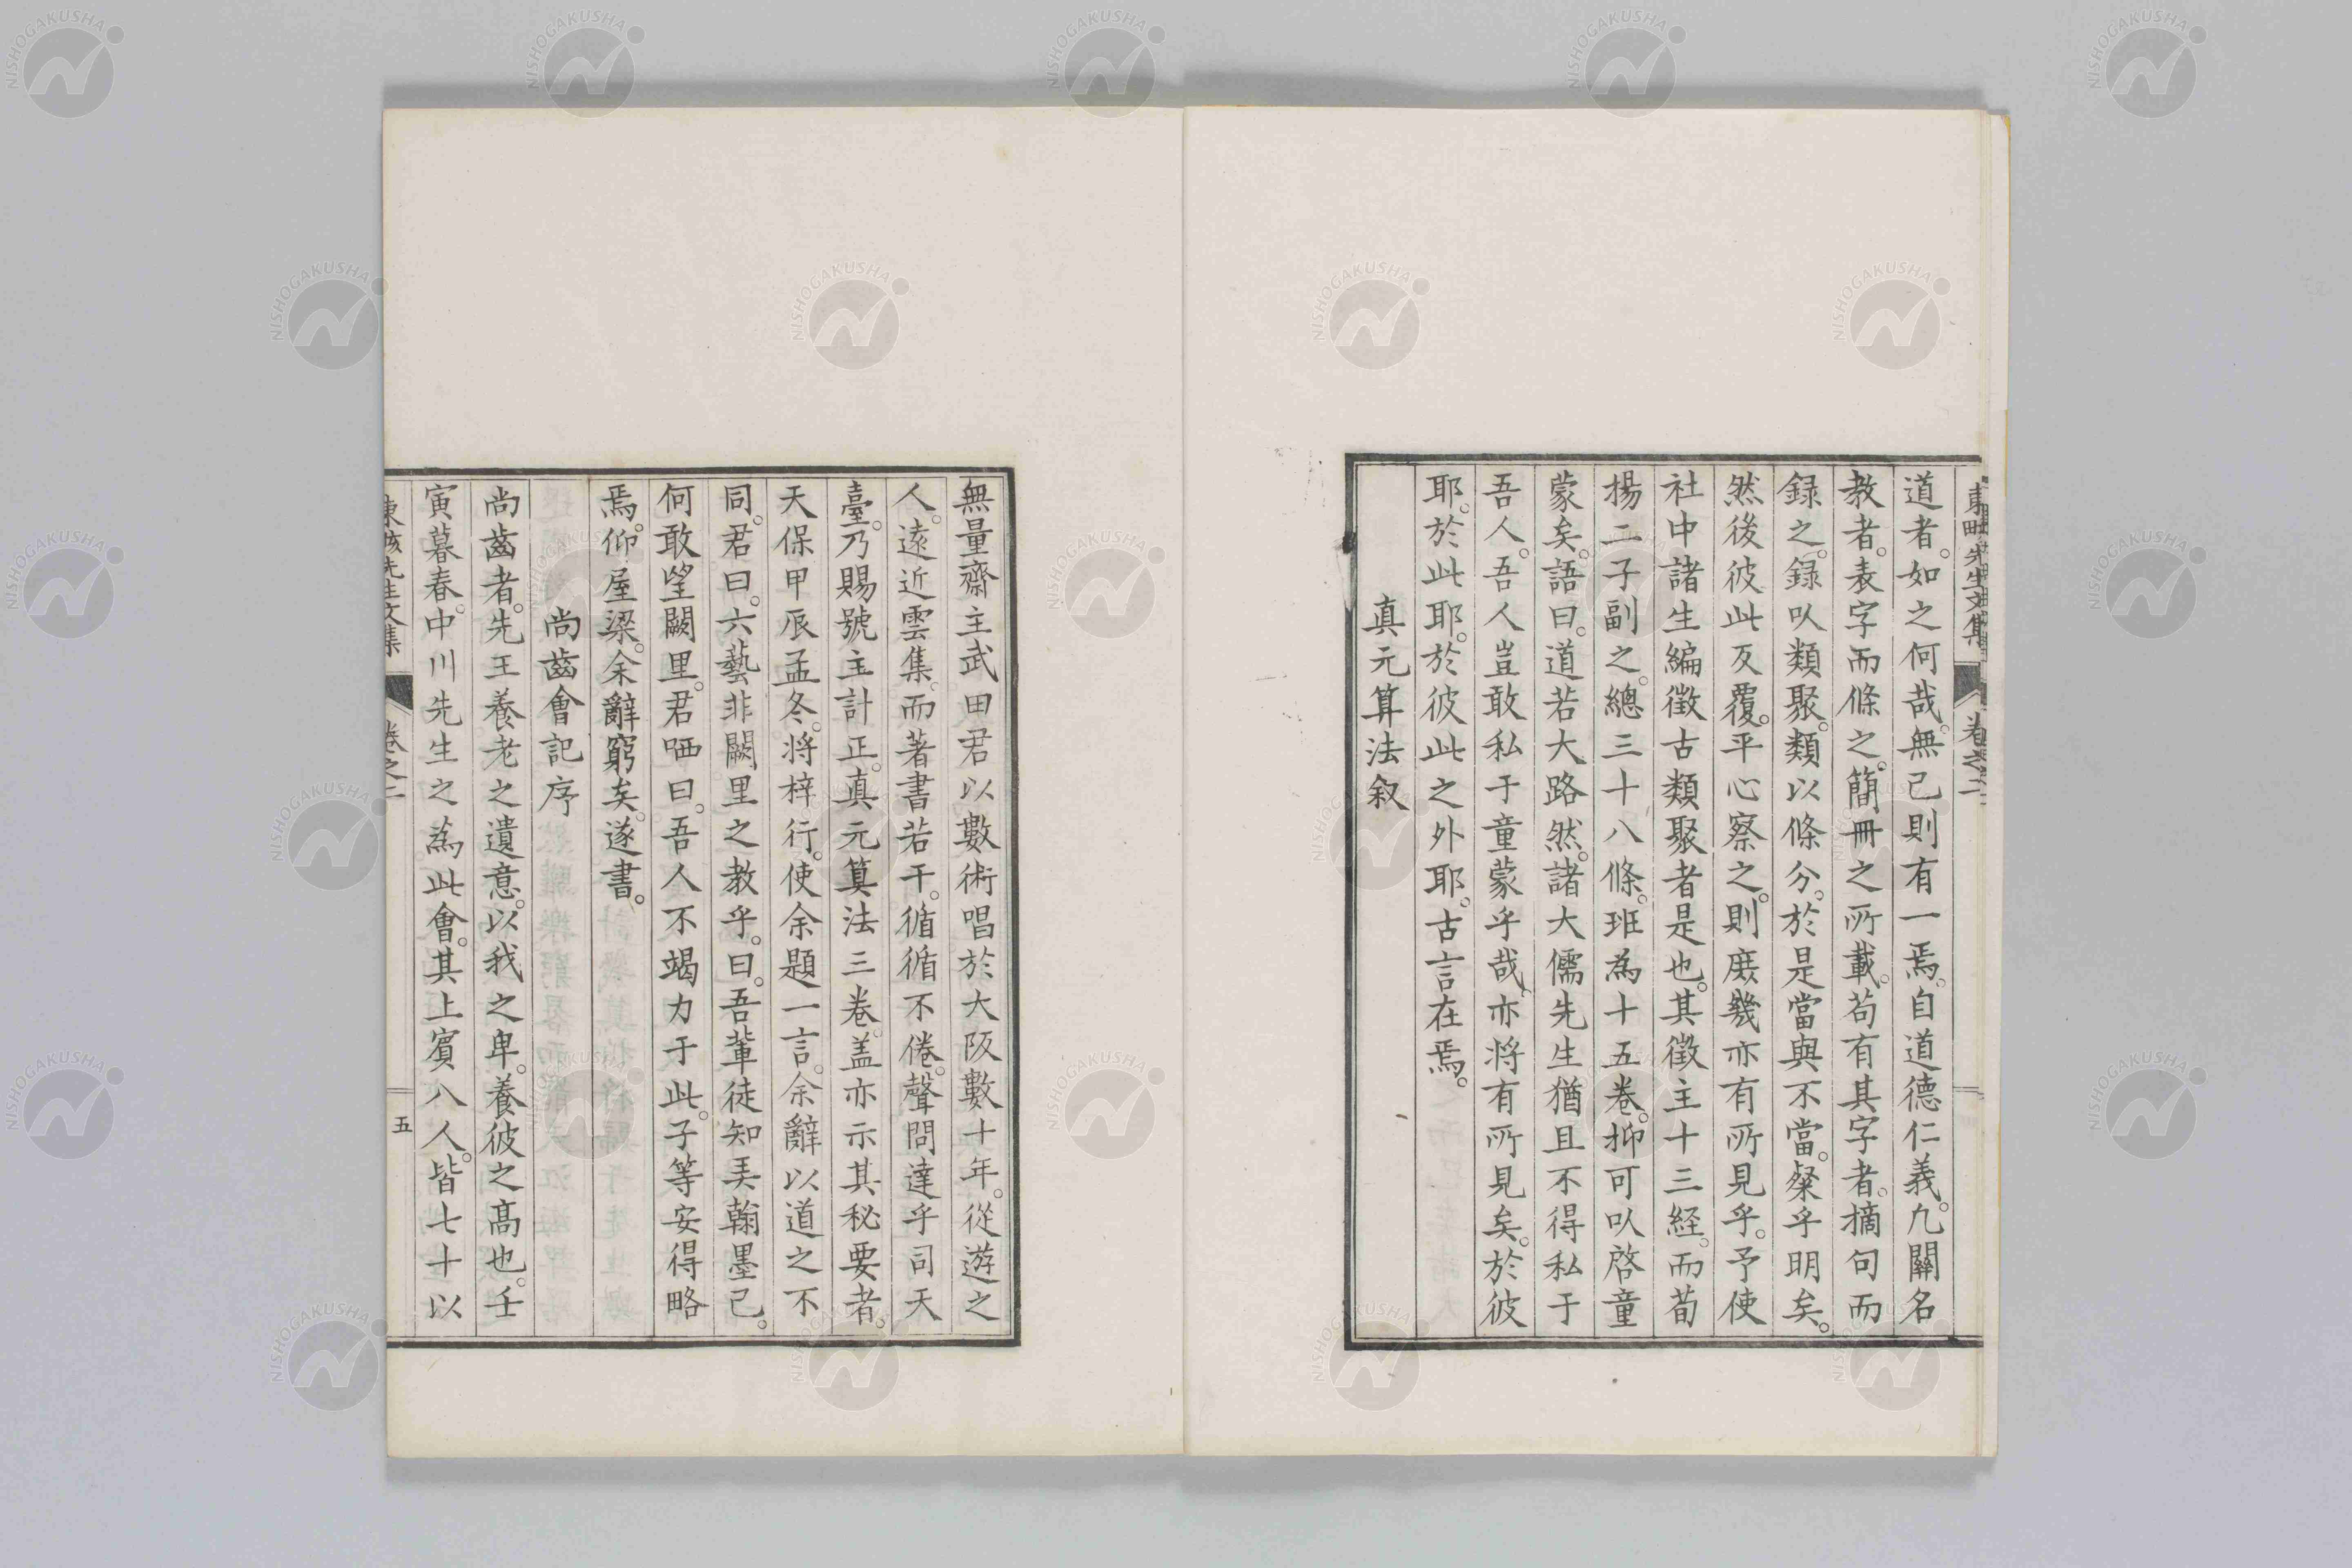 道者。如之何哉。無已則有一焉。自道德仁義。凢關名
教者。表字而條之。簡冊之所載。苟有其字者。摘句而
録之。録以類聚。類以條分。於是當與不當。粲乎明矣。
然後彼此反覆。平心察之。則庶幾亦有所見乎。予使
社中諸生編徵古類聚者是也。其徵主十三経。而荀
揚二子副之。總三十八條。班為十五卷。抑可以啓童
蒙矣。語曰。道若大路然。諸大儒先生猶且不得私于
吾人。吾人豈敢私于童蒙乎哉。亦将有所見矣。於彼
耶。於此耶。於彼此之外耶。古言在焉。
真元算法叙
無量齋主武田君以數術唱於大阪數十年。從遊之
人。遠近雲集。而著書若干。循循不倦。聲問達乎司天
臺。乃賜號主計正。真元算法三卷。盖亦示其秘要者。
天保甲辰孟冬。将梓行。使余題一言。余辭以道之不
同。君曰。六藝非闕里之教乎。曰。吾輩徒知弄翰墨已。
何敢望闕里。君哂曰。吾人不竭力于此。子等安得略
焉。仰屋梁。余辭窮矣。遂書。
尚齒會記序
尚齒者。先王養老之遺意。以我之卑。養彼之髙也。壬
寅暮春。中川先生之為此會。其上賓八人。皆七十以
先生文集
卷之二
五
NISHOGAKUSHA